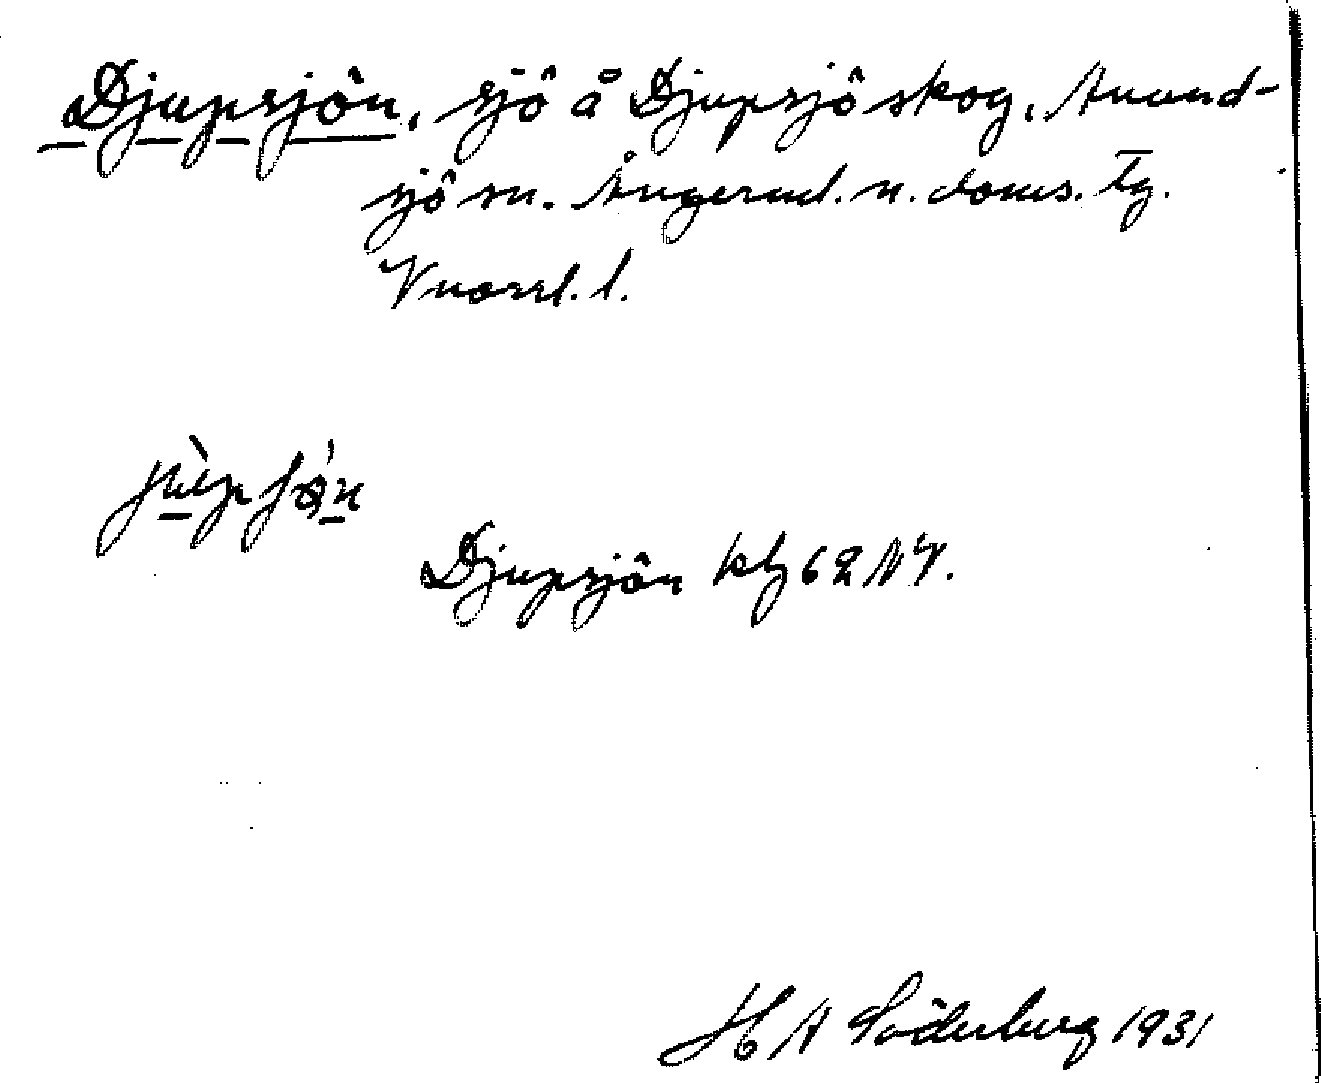 Djupsjön, sjö å Djupsjö skog, Anund-
sjö sn. Ångerml. n. doms. tg.
Vnorrl. l.
Djupsjön kbl 62 NV.
H A Söderberg 1931